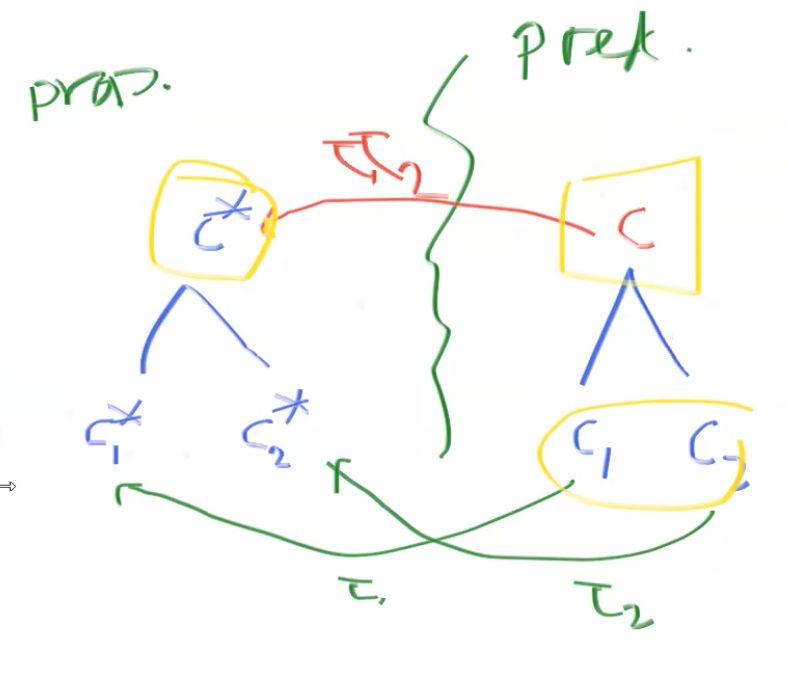 prop.
pref.
τ₁τ₂
C*
C
C₁*
C₂*
C₁
C₂
τ₁
τ₂